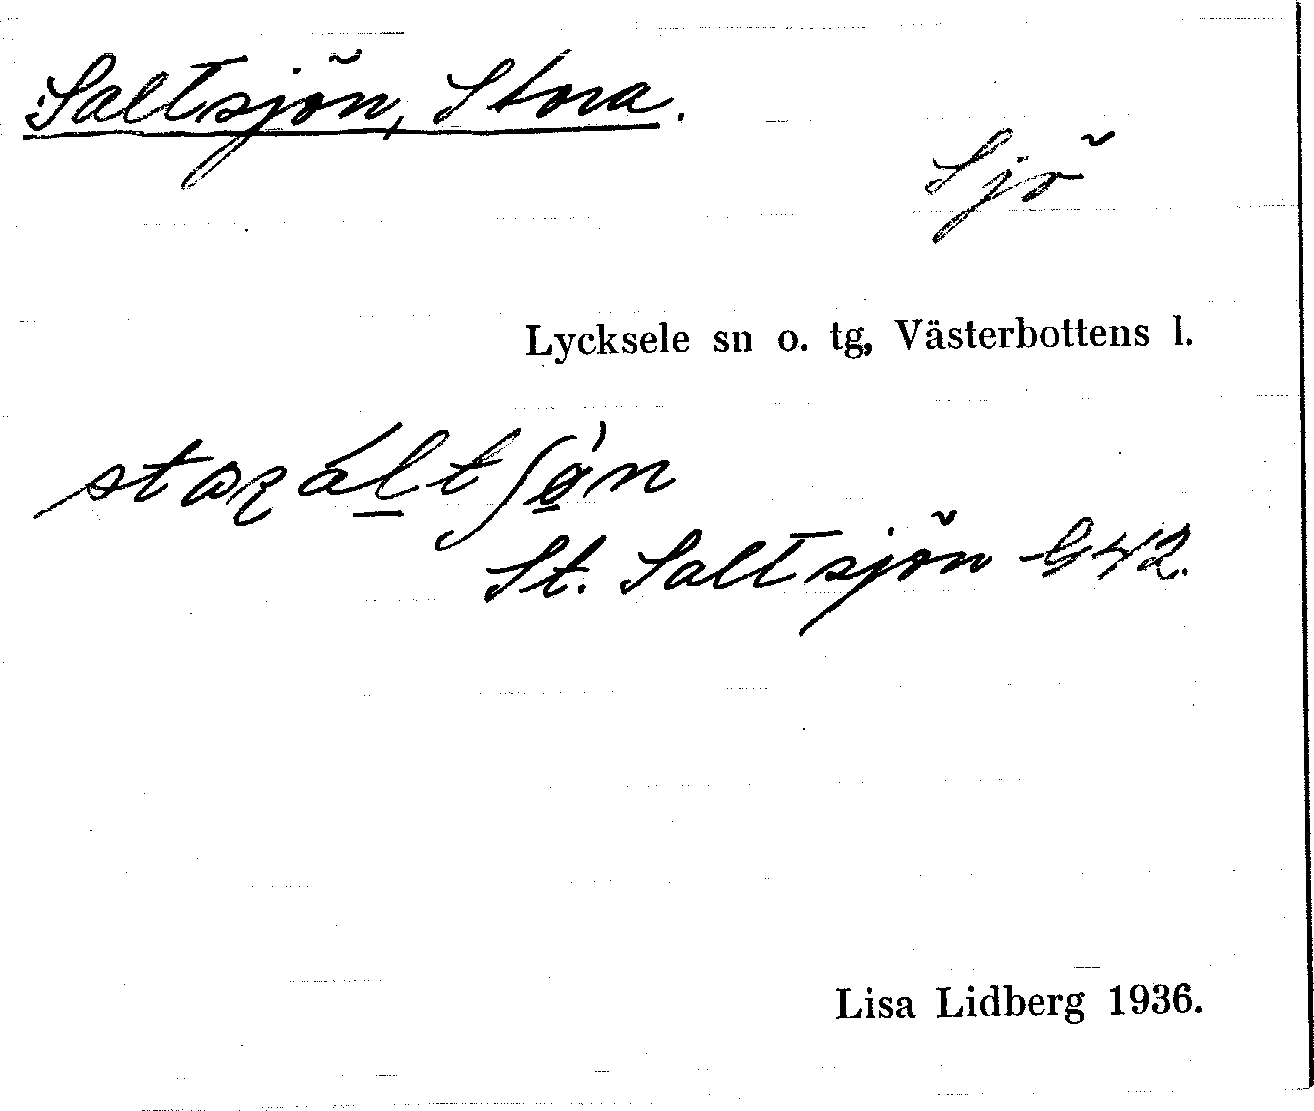 Saltsjön, Stora.
Sjö
Lycksele sn o. tg, Västerbottens l.
St. Saltsjön G42.
Lisa Lidberg 1936.